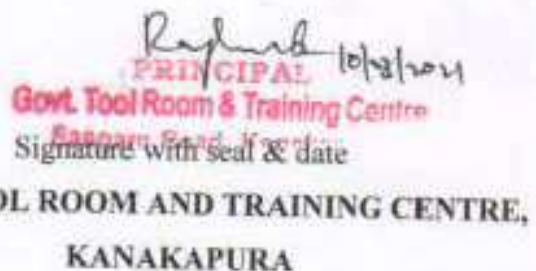 PRINCIPAL 10/08/2021
Govt. Tool Room & Training Centre
Road,
Signature with seal & date
OL ROOM AND TRAINING CENTRE,
KANAKAPURA